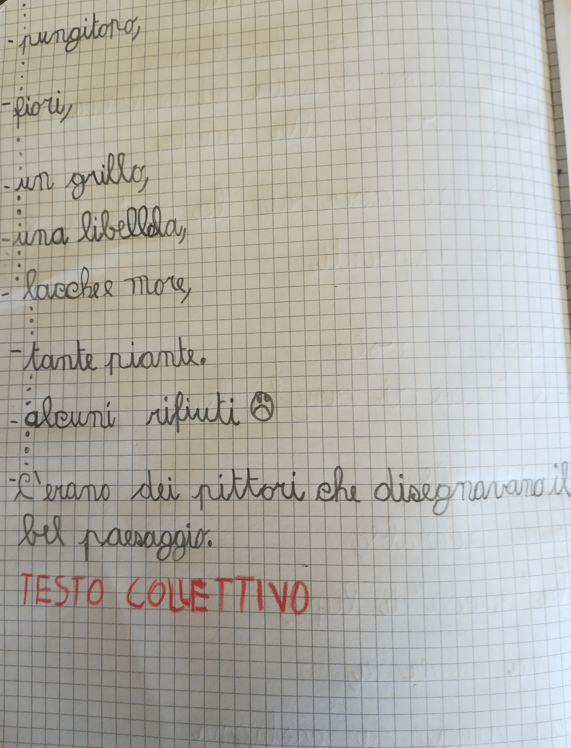 -pungitopo,
-fiori,
-un grillo,
-una libellula,
-bacche e more,
-tante piante.
-alcuni rifiuti ☹
-C'erano dei pittori che disegnavano il
bel paesaggio.
TESTO COLLETTIVO